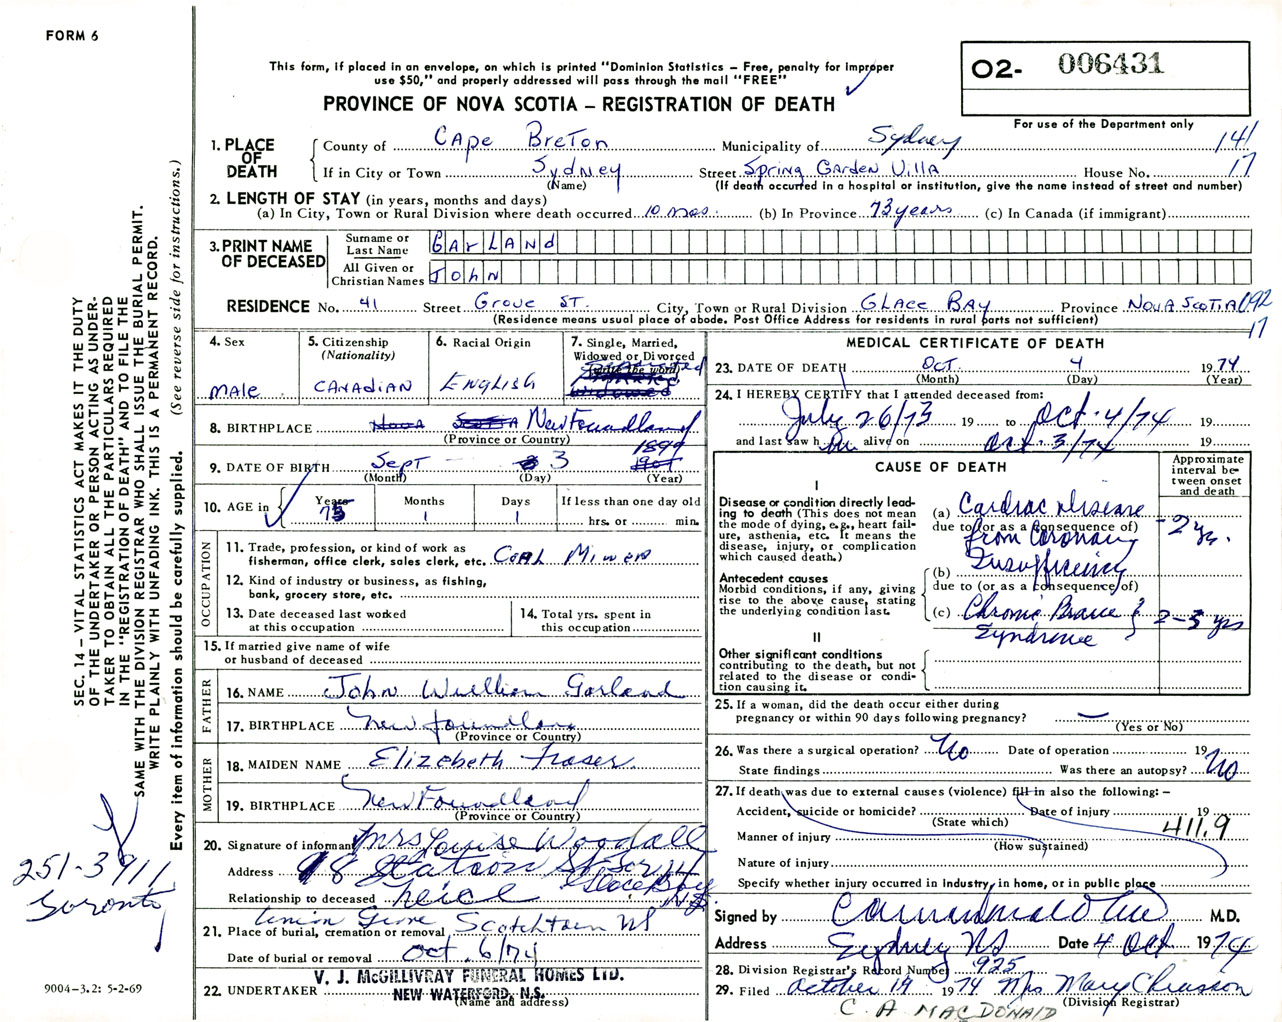 FORM 6
This form, if placed in an envelope, on which is printed "Dominion Statistics – Free, penalty for improper
use $50," and properly addressed will pass through the mail "FREE"
PROVINCE OF NOVA SCOTIA – REGISTRATION OF DEATH
O2- 006431
For use of the Department only
141
17
1. PLACE OF DEATH
County of Cape Breton Municipality of Sydney
If in City or Town Sydney Street Spring Garden Villa House No.
(Name) (If death occurred in a hospital or institution, give the name instead of street and number)
2. LENGTH OF STAY (in years, months and days)
(a) In City, Town or Rural Division where death occurred 10 mos. (b) In Province 73 years (c) In Canada (if immigrant)
3. PRINT NAME OF DECEASED
Surname or Last Name GArLANd
All Given or Christian Names JohN
RESIDENCE No. 41 Street Grove ST. City, Town or Rural Division GLACE BAY Province NOVA SCOTIA 092
(Residence means usual place of abode. Post Office Address for residents in rural parts not sufficient)
17
4. Sex
MALE
5. Citizenship
(Nationality)
CANADIAN
6. Racial Origin
ENGLISH
7. Single, Married,
Widowed or Divorced
(write the word)
Separated
widowed
8. BIRTHPLACE Nova Scotia Newfoundland
(Province or Country)
9. DATE OF BIRTH Sept 3 1899
(Month) (Day) (Year)
10. AGE in
Years 75
Months 1
Days 1
If less than one day old
hrs. or min.
OCCUPATION
11. Trade, profession, or kind of work as
fisherman, office clerk, sales clerk, etc. Coal Miner
12. Kind of industry or business, as fishing,
bank, grocery store, etc.
13. Date deceased last worked
at this occupation
14. Total yrs. spent in
this occupation
15. If married give name of wife
or husband of deceased
FATHER
16. NAME John William Garland
17. BIRTHPLACE Newfoundland
(Province or Country)
MOTHER
18. MAIDEN NAME Elizebeth Fraser
19. BIRTHPLACE Newfoundland
(Province or Country)
20. Signature of informant Mrs Louise Woodall
Address 18 Station St
Glace Bay N.S.
Relationship to deceased neice
21. Place of burial, cremation or removal Union Grove Scotchtown NS
Date of burial or removal Oct. 6/74
22. UNDERTAKER V. J. McGILLIVRAY FUNERAL HOMES LTD.
NEW WATERFORD, N.S.
(Name and address)
MEDICAL CERTIFICATE OF DEATH
23. DATE OF DEATH Oct. 4 1974
(Month) (Day) (Year)
24. I HEREBY CERTIFY that I attended deceased from:
July 26/73 19 to Oct. 4/74 19
and last saw him alive on Oct. 3/74 19
CAUSE OF DEATH
Approximate
interval be-
tween onset
and death
I
Disease or condition directly lead-
ing to death (This does not mean
the mode of dying, e.g., heart fail-
ure, asthenia, etc. It means the
disease, injury, or complication
which caused death.)
(a) Cardiac disease
due to (or as a consequence of)
from Coronary
Insufficiency
- 2 yr.
Antecedent causes
Morbid conditions, if any, giving
rise to the above cause, stating
the underlying condition last.
(b)
due to (or as a consequence of)
(c) Chronic Brain
Syndrome
2-3 yrs
II
Other significant conditions
contributing to the death, but not
related to the disease or condi-
tion causing it.
25. If a woman, did the death occur either during
pregnancy or within 90 days following pregnancy? —
(Yes or No)
26. Was there a surgical operation? No Date of operation 19
State findings Was there an autopsy? No
27. If death was due to external causes (violence) fill in also the following: –
Accident, suicide or homicide? Date of injury 19
(State which)
411.9
Manner of injury
(How sustained)
Nature of injury
Specify whether injury occurred in Industry, in home, or in public place
Signed by M.D.
Address Sydney NS Date 4 Oct 1974
28. Division Registrar's Record Number 925
29. Filed October 19 1974 Mrs Mary Chiasson
(Division Registrar)
C A MACDONALD
SEC. 14 – VITAL STATISTICS ACT MAKES IT THE DUTY
OF THE UNDERTAKER OR PERSON ACTING AS UNDER-
TAKER TO OBTAIN ALL THE PARTICULARS REQUIRED
IN THE "REGISTRATION OF DEATH" AND TO FILE THE
SAME WITH THE DIVISION REGISTRAR WHO SHALL ISSUE THE BURIAL PERMIT.
WRITE PLAINLY WITH UNFADING INK. THIS IS A PERMANENT RECORD.
Every item of information should be carefully supplied. (See reverse side for instructions.)
251-3911
Toronto
9004-3.2: 5-2-69